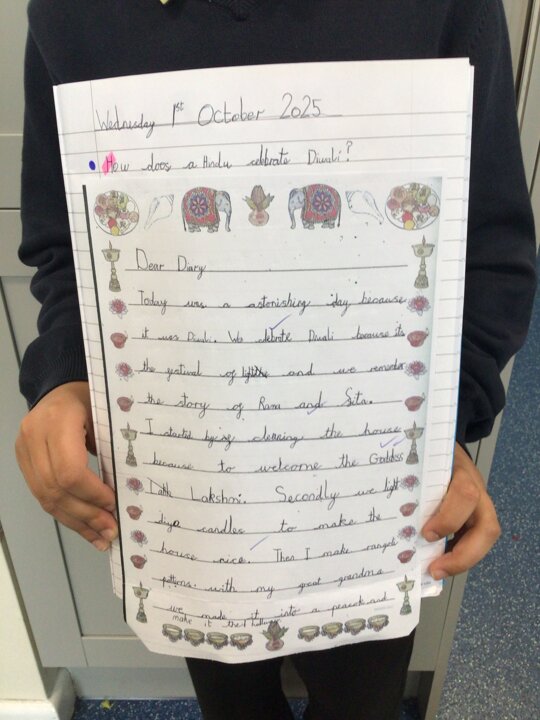 Wednesday 1st October 2025
How does a Hindu celebrate Diwali?
Dear Diary
Today was a astonishing day because
it was Diwali. We celebrate Diwali because its
the festival of and we remember
the story of Rama and Sita.
I started by cleaning the house
because to welcome the Goddess
Lakshmi. Secondly we light
diya candles to make the
house nice. Then I make rangoli
patterns with my great grandma
we made it into a peacock and
make it the